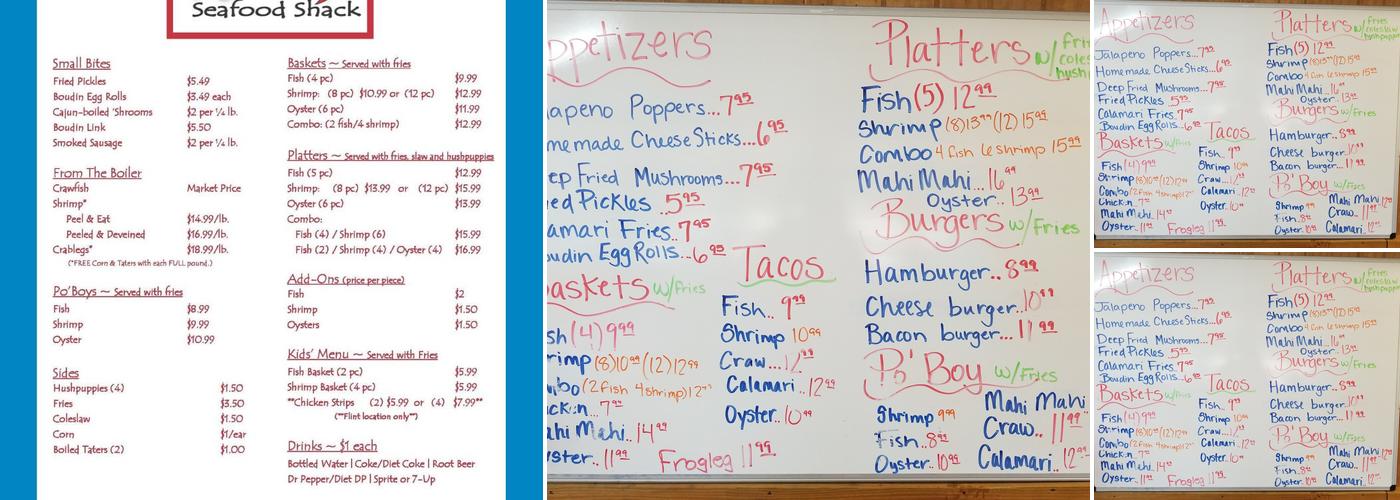 Seafood Shack
Small Bites
Fried Pickles $5.49
Boudin Egg Rolls $3.49 each
Cajun-boiled 'Shrooms $2 per ¼ lb.
Boudin Link $5.50
Smoked Sausage $2 per ¼ lb.
From The Boiler
Crawfish Market Price
Shrimp*
Peel & Eat $14.99/lb.
Peeled & Deveined $16.99/lb.
Crablegs* $18.99/lb.
(*FREE Corn & Taters with each FULL pound.)
Po'Boys ~ Served with fries
Fish $8.99
Shrimp $9.99
Oyster $10.99
Sides
Hushpuppies (4) $1.50
Fries $3.50
Coleslaw $1.50
Corn $1/ear
Boiled Taters (2) $1.00
Baskets ~ Served with fries
Fish (4 pc) $9.99
Shrimp: (8 pc) $10.99 or (12 pc) $12.99
Oyster (6 pc) $11.99
Combo: (2 fish/4 shrimp) $12.99
Platters ~ Served with fries, slaw and hushpuppies
Fish (5 pc) $12.99
Shrimp: (8 pc) $13.99 or (12 pc) $15.99
Oyster (6 pc) $13.99
Combo:
Fish (4) / Shrimp (6) $15.99
Fish (2) / Shrimp (4) / Oyster (4) $16.99
Add-Ons (price per piece)
Fish $2
Shrimp $1.50
Oysters $1.50
Kids' Menu ~ Served with Fries
Fish Basket (2 pc) $5.99
Shrimp Basket (4 pc) $5.99
**Chicken Strips (2) $5.99 or (4) $7.99**
(**Flint location only**)
Drinks ~ $1 each
Bottled Water | Coke/Diet Coke | Root Beer
Dr Pepper/Diet DP | Sprite or 7-Up
ppetizers
lapeno Poppers...7.95
memade Cheese Sticks...6.95
eep Fried Mushrooms...7.95
ied Pickles ..5.95
amari Fries..7.95
oudin Egg Rolls...6.95
askets w/Fries
sh (4) 9.99
rimp (8) 10.99 (12) 12.99
mbo (2 fish 4 shrimp) 12
icken...7
ahi Mahi..14.99
ster..11.99
Frogleg 11.99
Tacos
Fish..9.99
Shrimp 10.99
Craw...
Calamari..12.99
Oyster..10.99
Platters w/
Fish (5) 12.99
Shrimp (8) 13.99 (12) 15.99
Combo 4 fish 6 shrimp 15.99
Mahi Mahi...16.99
Oyster..13.99
Burgers w/Fries
Hamburger..8.99
Cheese burger..10.99
Bacon burger...11.99
Po' Boy w/Fries
Shrimp 9.99
Fish..8.99
Oyster..10.99
Mahi Mahi
Craw..11.99
Calamari..12
Appetizers
Jalapeno Poppers...7.95
Homemade Cheese Sticks...6.95
Deep Fried Mushrooms...7.95
Fried Pickles 5.95
Calamari Fries..7.95
Boudin Egg Rolls...6.95
Baskets w/Fries
Fish (4) 9.99
Shrimp (8) 10.99 (12) 12.99
Combo (2 fish 4 shrimp) 12
Chicken..7
Mahi Mahi..14.99
Oyster..11.99
Frogleg 11.99
Tacos
Fish..9.99
Shrimp 10.99
Craw...
Calamari..12.99
Oyster..10.99
Platters w/ Fries coleslaw hushpuppies
Fish (5) 12.99
Shrimp (8) 13.99 (12) 15.99
Combo 4 fish 6 shrimp 15.99
Mahi Mahi...16
Oyster..13.99
Burgers w/Fries
Hamburger..8.99
Cheese burger..10.99
Bacon burger...11.99
Po' Boy w/Fries
Shrimp 9.99
Fish..8.99
Oyster..10.99
Mahi Mahi 12
Craw..11.99
Calamari..12
Appetizers
Jalapeno Poppers...7.95
Homemade Cheese Sticks...6.95
Deep Fried Mushrooms...7.95
Fried Pickles 5.95
Calamari Fries..7.95
Boudin Egg Rolls...6.95
Baskets w/Fries
Fish (4) 9.99
Shrimp (8) 10.99 (12) 12.99
Combo (2 fish 4 shrimp) 12
Chicken..7
Mahi Mahi..14.99
Oyster..11.99
Frogleg 11.99
Tacos
Fish..9.99
Shrimp 10.99
Craw...
Calamari..12.99
Oyster..10.99
Platters w/ Fries coleslaw hushpuppies
Fish (5) 12.99
Shrimp (8) 13.99 (12) 15.99
Combo 4 fish 6 shrimp 15.99
Mahi Mahi...16
Oyster..13.99
Burgers w/Fries
Hamburger..8.99
Cheese burger..10.99
Bacon burger...11.99
Po' Boy w/Fries
Shrimp 9.99
Fish..8.99
Oyster..10.99
Mahi Mahi 12
Craw..11.99
Calamari..12